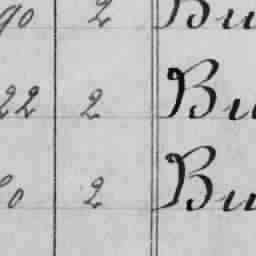 90 2 Bu
22 2 Bu
0 2 Bu